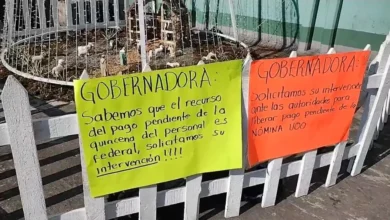 GOBERNADORA:
Sabemos que el recurso
del pago pendiente de la
quincena del personal es
federal, solicitamos su
intervención !!!!
GOBERNADORA:
Solicitamos su intervención
ante las autoridades para
liberar pago pendiente de la
NÓMINA